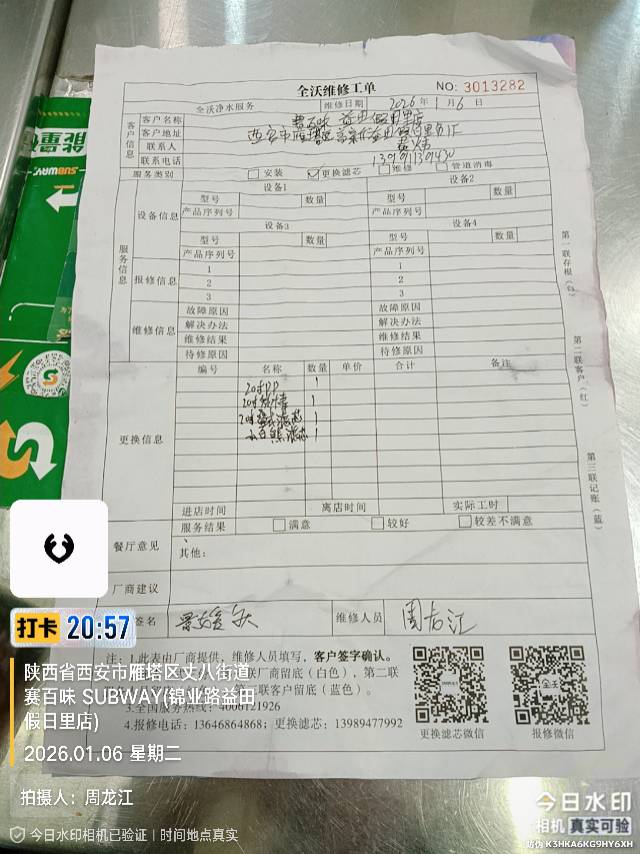 全沃维修工单
NO: 3013282
全沃净水服务 维修日期 2026年1月6日
客户信息
客户名称 益田假日里店
客户地址 西安市雁塔区
联系人
联系电话
服务类别 安装 更换滤芯 维修 管道消毒
服务信息
设备信息
设备1 设备2
型号 数量 型号 数量
产品序列号 产品序列号
设备3 设备4
型号 数量 型号 数量
产品序列号 产品序列号
报修信息
1 1
2 2
3 3
维修信息
故障原因 故障原因
解决办法 解决办法
维修结果 维修结果
待修原因 待修原因
更换信息
编号 名称 数量 单价 合计 备注
20寸PP 1
1
1
1
进店时间 离店时间 实际工时
餐厅意见
服务结果 满意 较好 较差不满意
其他:
厂商建议
签名 维修人员 周龙江
注: 1.此表由厂商提供, 维修人员填写, 客户签字确认。
联厂商留底(白色), 第二联
联客户留底(蓝色)。
3.全国服务热线: 4006121926
4.报修电话: 13646864868; 更换滤芯: 13989477992
更换滤芯微信 报修微信
第一联存根(白)
第二联客户(红)
第三联记账(蓝)
能量
SUBWAY
打卡 20:57
陕西省西安市雁塔区丈八街道
赛百味 SUBWAY(锦业路益田
假日里店)
2026.01.06 星期二
拍摄人: 周龙江
今日水印相机已验证 | 时间地点真实
今日水印
相机 真实可验
防伪 K3HKA6KG9HY6XH